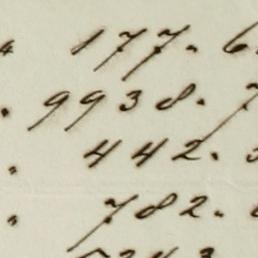 177. 6
9938. 7
442.
782.